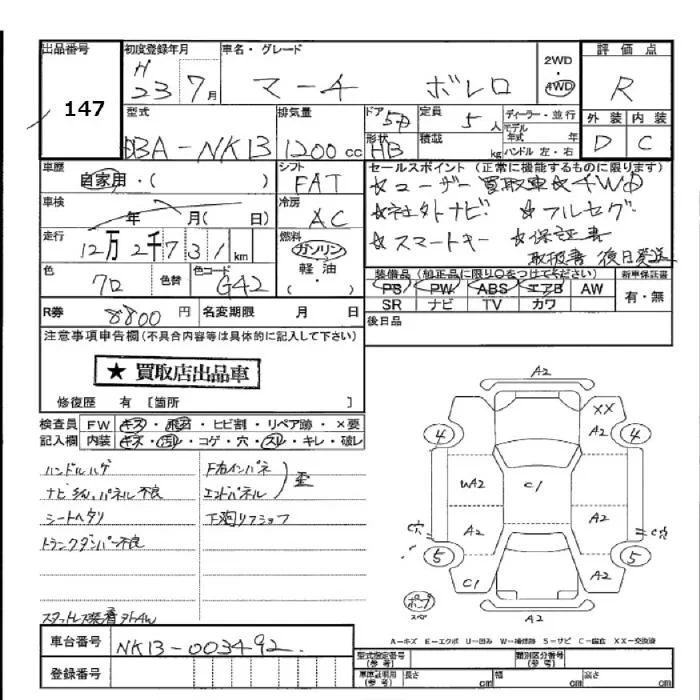 出品番号 初度登録年月 車名・グレード 2WD 評価点
147 H 23 7月 マーチ ボレロ 4WD R
型式 排気量 ドア 定員 ディーラー・並行 外装 内装
DBA-NK13 1200cc 5D 5人 モデル年式 年 D C
形状 HB 積載 kg ハンドル 左・右
車歴 自家用・( ) シフト FAT セールスポイント (正常に機能するものに限ります)
☆ユーザー買取車☆4WD
車検 年 月( 日) 冷房 AC ☆社外ナビ ☆フルセグ
走行 12万2千731km 燃料 ガソリン ☆スマートキー ☆保証書
軽油 取扱書 後日発送
・( )
色 色替 色コード 装備品 (純正品に限り○をつけてください) 新車保証書
クロ G42 PS PW ABS エアB AW 有・無
SR ナビ TV カワ
R券 8800円 名変期限 月 日 後日品
注意事項申告欄(不具合内容等は具体的に記入して下さい)
★ 買取店出品車
修復歴 有 〔箇所 〕
検査員 FW キズ・ ・ヒビ割・リペア跡・×要
記入欄 内装 キズ・汚レ・コゲ・穴・スレ・キレ・破レ
ハンドルハゲ F右インパネ
ナビ パネル不良 エンドパネル 歪
シートヘタリ 下廻リフショフ
トランクダンパー不良
スタッドレス装着
A2
XX
4 A2 4
WA2 C1
A2 A2
C穴 C穴
5 5
C1 A2
ポップ
A2
A－キズ E－エクボ U－凹み W－補修跡 S－サビ C－腐食 XX－交換済
車台番号 NK13-003492
登録番号
型式指定番号(参考) 類別区分番号(参考)
車庫証明用(参考) 長さ cm 幅 cm 高さ cm